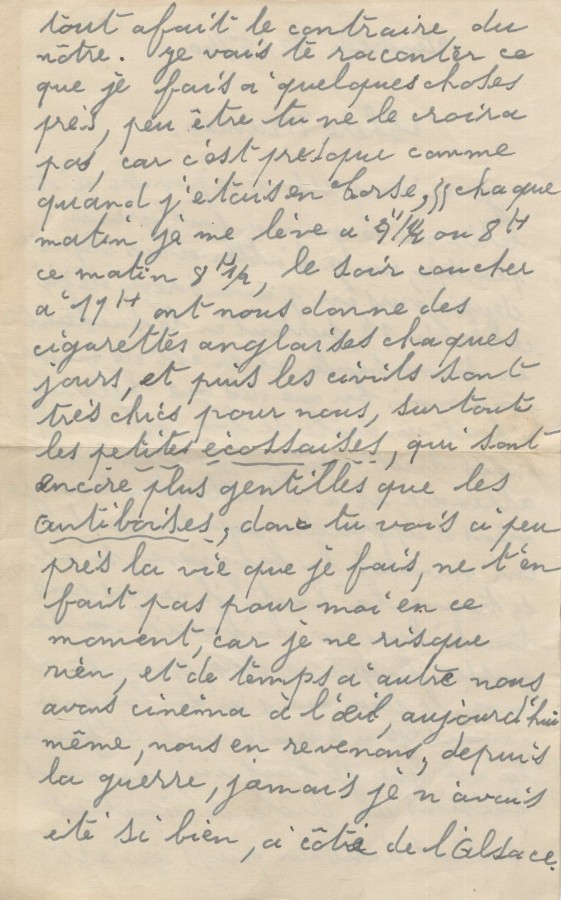 tout afait le contraire du
nôtre. je vais te raconter ce
que je fais a quelques choses
près, peu être tu ne le croira
pas, car c'est presque comme
quand j'etais en Corse, chaque
matin je me lève a ou 8H
ce matin 8H1/2, le soir coucher
a 11H, ont nous donne des
cigarettes anglaises chaques
jours, et puis les civils sont
très chics pour nous, surtout
les petites ecossaises, qui sont
encore plus gentilles que les
antiboises, donc tu vois a peu
près la vie que je fais, ne t'en
fait pas pour moi en ce
moment, car je ne risque
rien, et de temps a autre nous
avons cinéma à l'œil, aujourd'hui
même, nous en revenons, depuis
la guerre, jamais je n'avais
été si bien, a côté de l'Alsace.